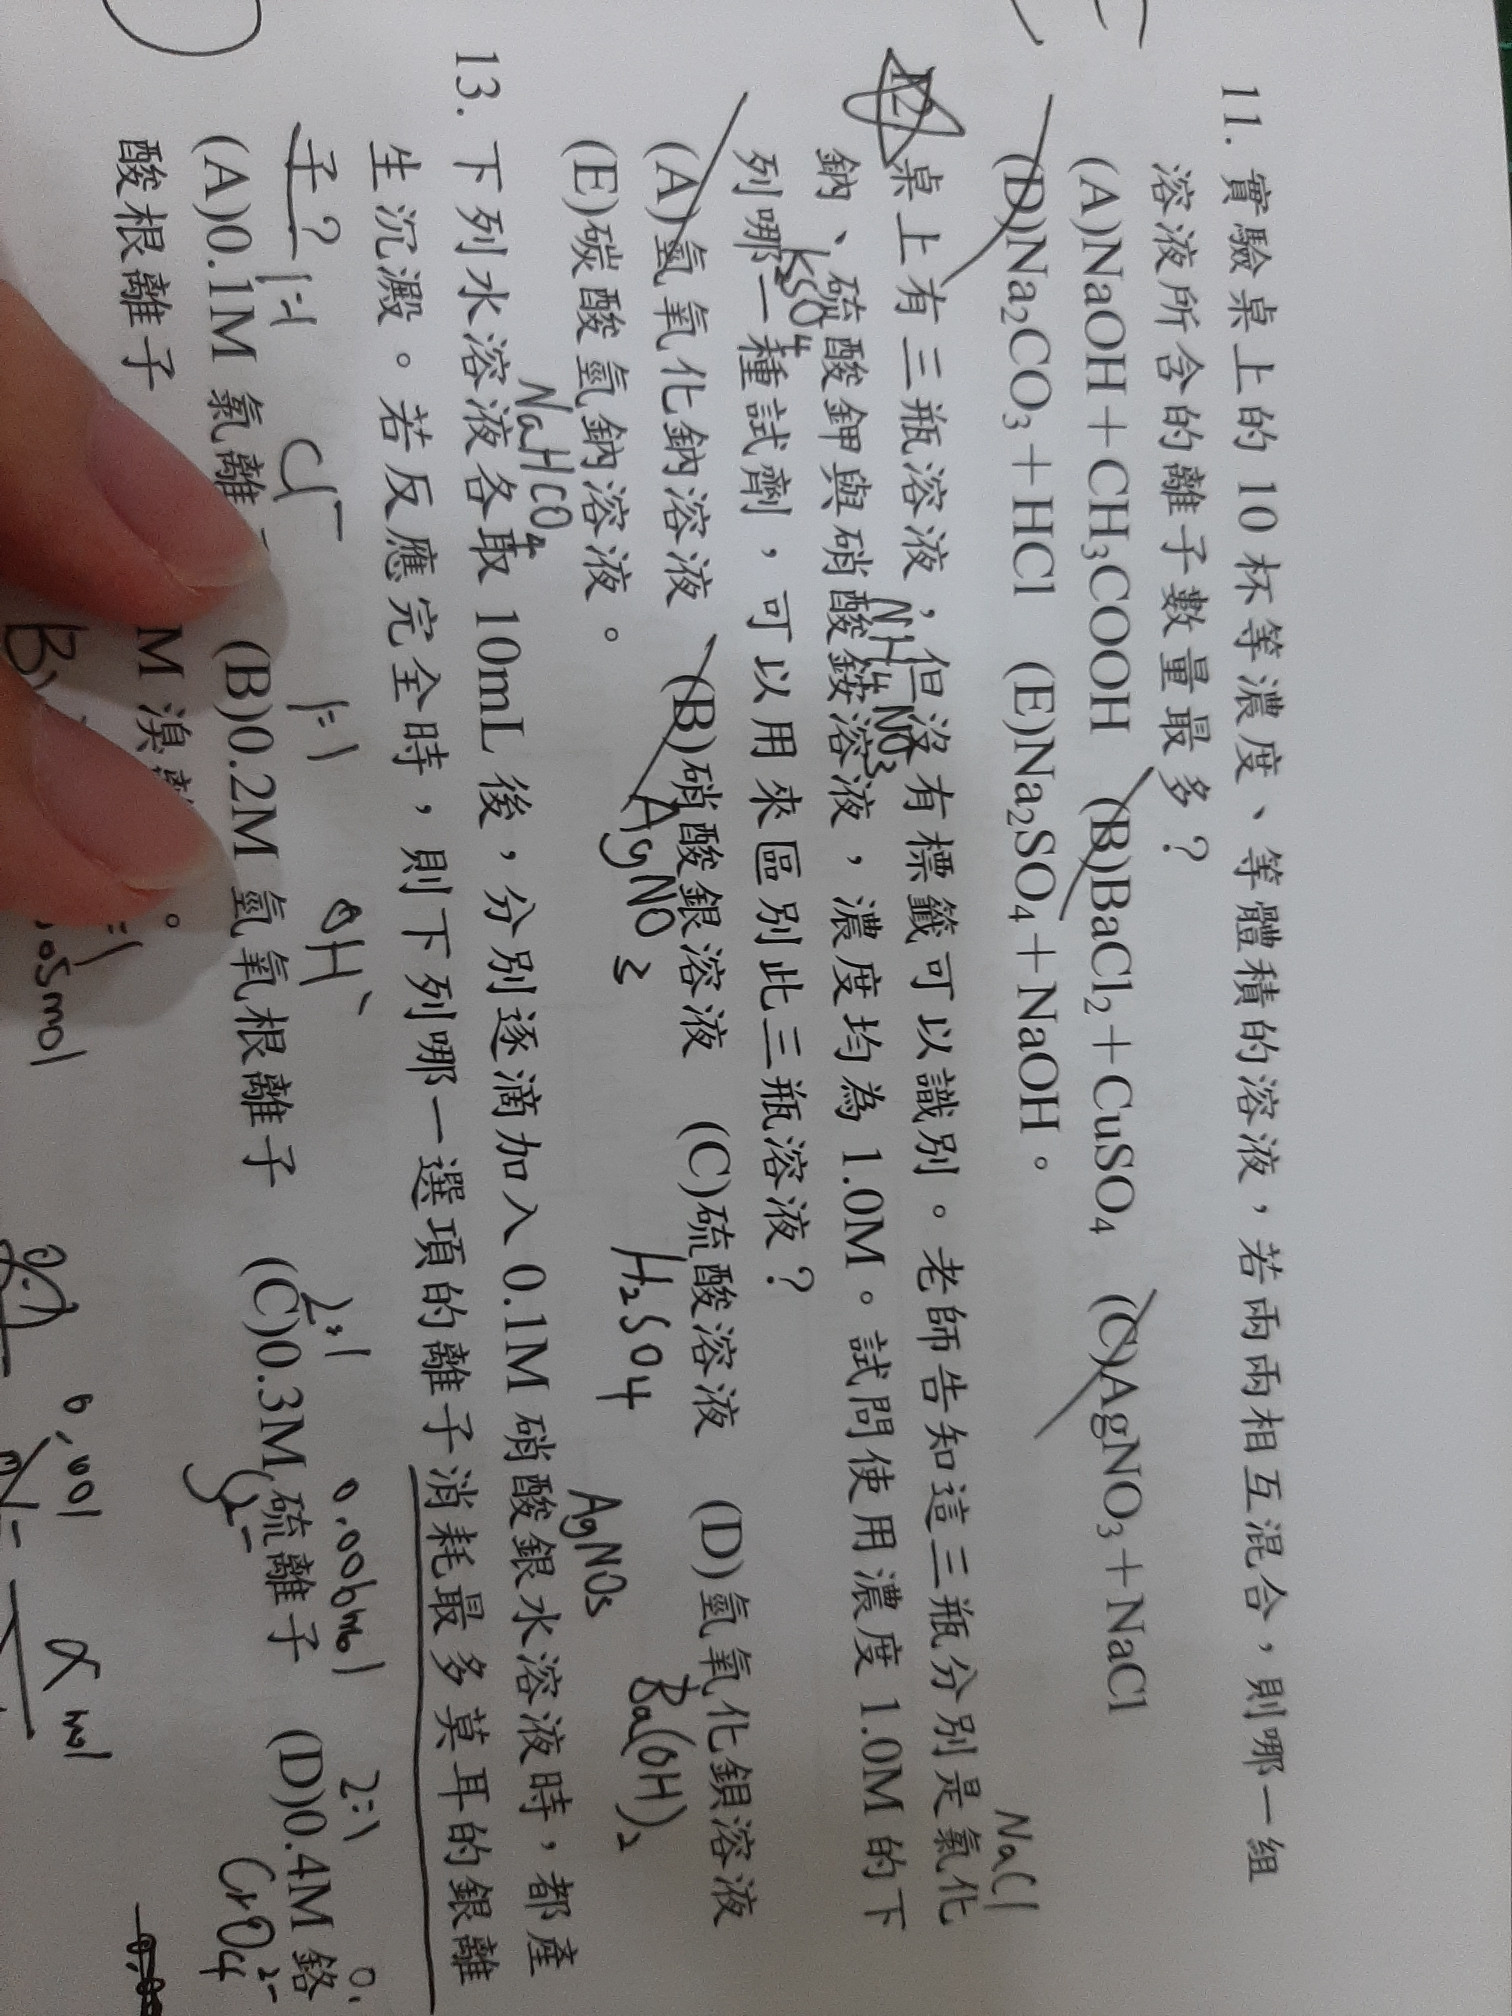 11. 實驗桌上的 10 杯等濃度、等體積的溶液，若兩兩相互混合，則哪一組
溶液所含的離子數量最多？
(A)NaOH＋CH₃COOH (B)BaCl₂＋CuSO₄ (C)AgNO₃＋NaCl
(D)Na₂CO₃＋HCl (E)Na₂SO₄＋NaOH。
NaCl
12. 桌上有三瓶溶液，但沒有標籤可以識別。老師告知這三瓶分別是氯化
NH₄NO₃
鈉、硫酸鉀與硝酸銨溶液，濃度均為 1.0M。試問使用濃度 1.0M 的下
KSO₄
列哪一種試劑，可以用來區別此三瓶溶液？
(A)氫氧化鈉溶液 (B)硝酸銀溶液 (C)硫酸溶液 (D)氫氧化鋇溶液
AgNO₃ H₂SO₄ Ba(OH)₂
(E)碳酸氫鈉溶液。
NaHCO₄ AgNO₃
13. 下列水溶液各取 10mL 後，分別逐滴加入 0.1M 硝酸銀水溶液時，都產
生沉澱。若反應完全時，則下列哪一選項的離子消耗最多莫耳的銀離
子？
1:1 Cl⁻ 1:1 OH⁻ 2:1 0.006mol 2:1 0.
(A)0.1M 氯離 (B)0.2M 氫氧根離子 (C)0.3M 硫離子 (D)0.4M 鉻
S²⁻ CrO₄²⁻
酸根離子 M 溴 。
:1
.05mol
0.001
x mol